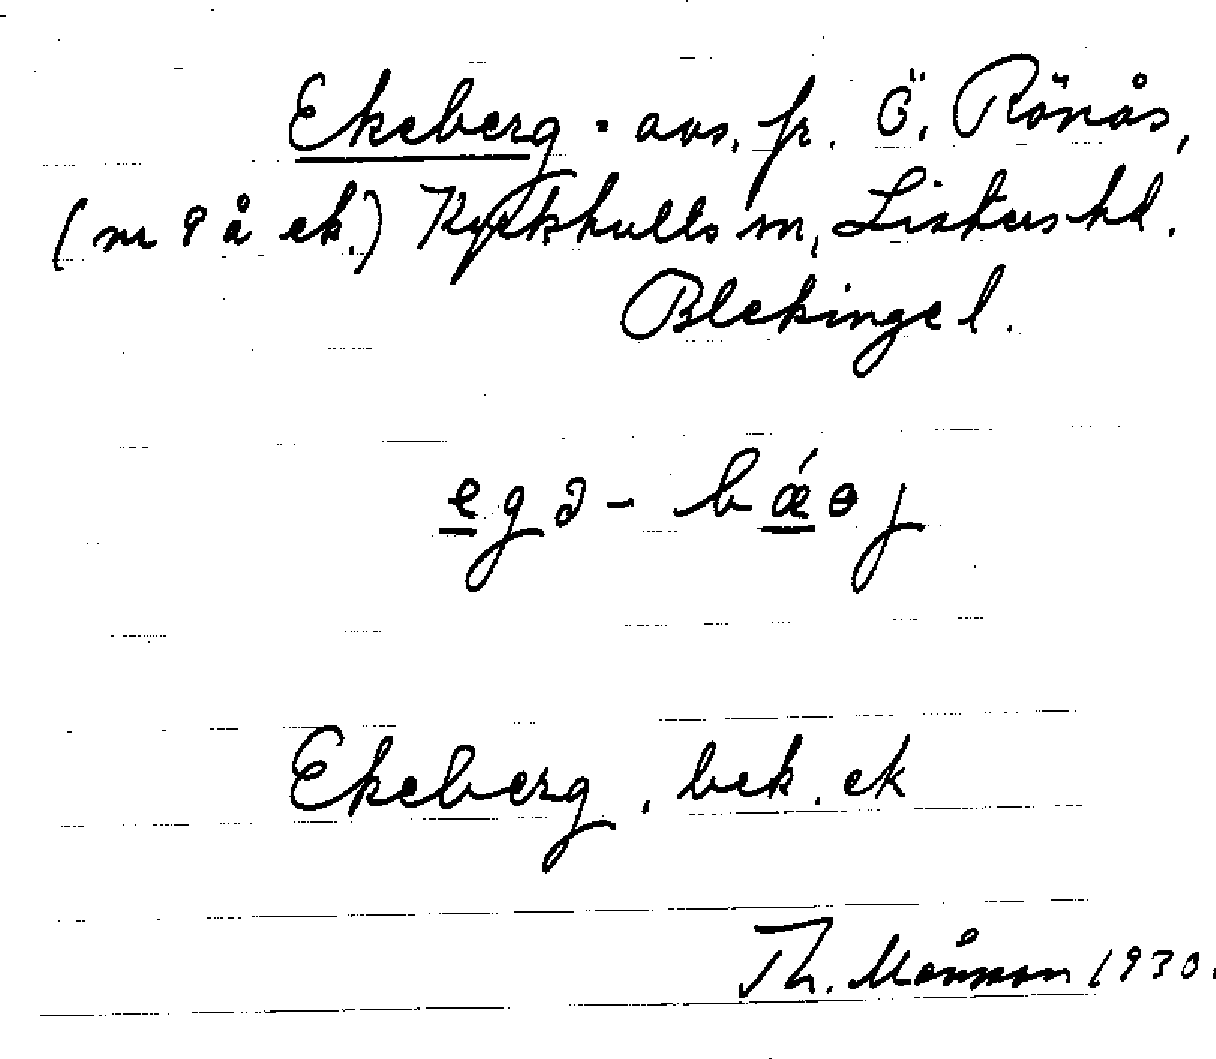 Ekeberg. avs. fr. Ö. Rönås,
(nr 9 å ek.) Kyrkhults sn, Listers hd.
Blekinge l.
egə - bǽɵj
Ekeberg. bek. ek
Th. Månson 1930.